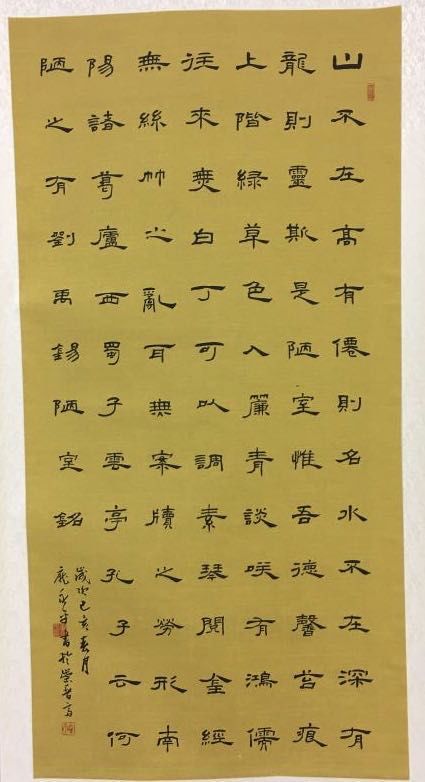 山不在高有僊則名水不在深有
龍則靈斯是陋室惟吾德馨苔痕
上階綠草色入簾青談咲有鴻儒
往來無白丁可以調素琴閱金經
無絲竹之亂耳無案牘之勞形南
陽諸葛廬西蜀子雲亭孔子云何
陋之有劉禹錫陋室銘
歲次己亥春月
龐永平書於